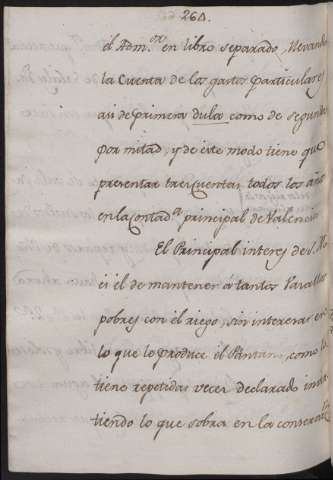 264.
el Adm.or en libro separado, llevando
la Cuenta de los gastos particulares
asi de primera dula como de segunda
por mitad, y de este modo tiene que
presentar tres cuentas todos los años
en la Contad.a principal de Valencia
El Principal interes de S. M.
es el de mantener á tantos Vasallos
pobres con el riego, sin interesar en
lo que le produce el Pantano, como lo
tiene repetidas veces declarado
tiendo lo que sobra en la